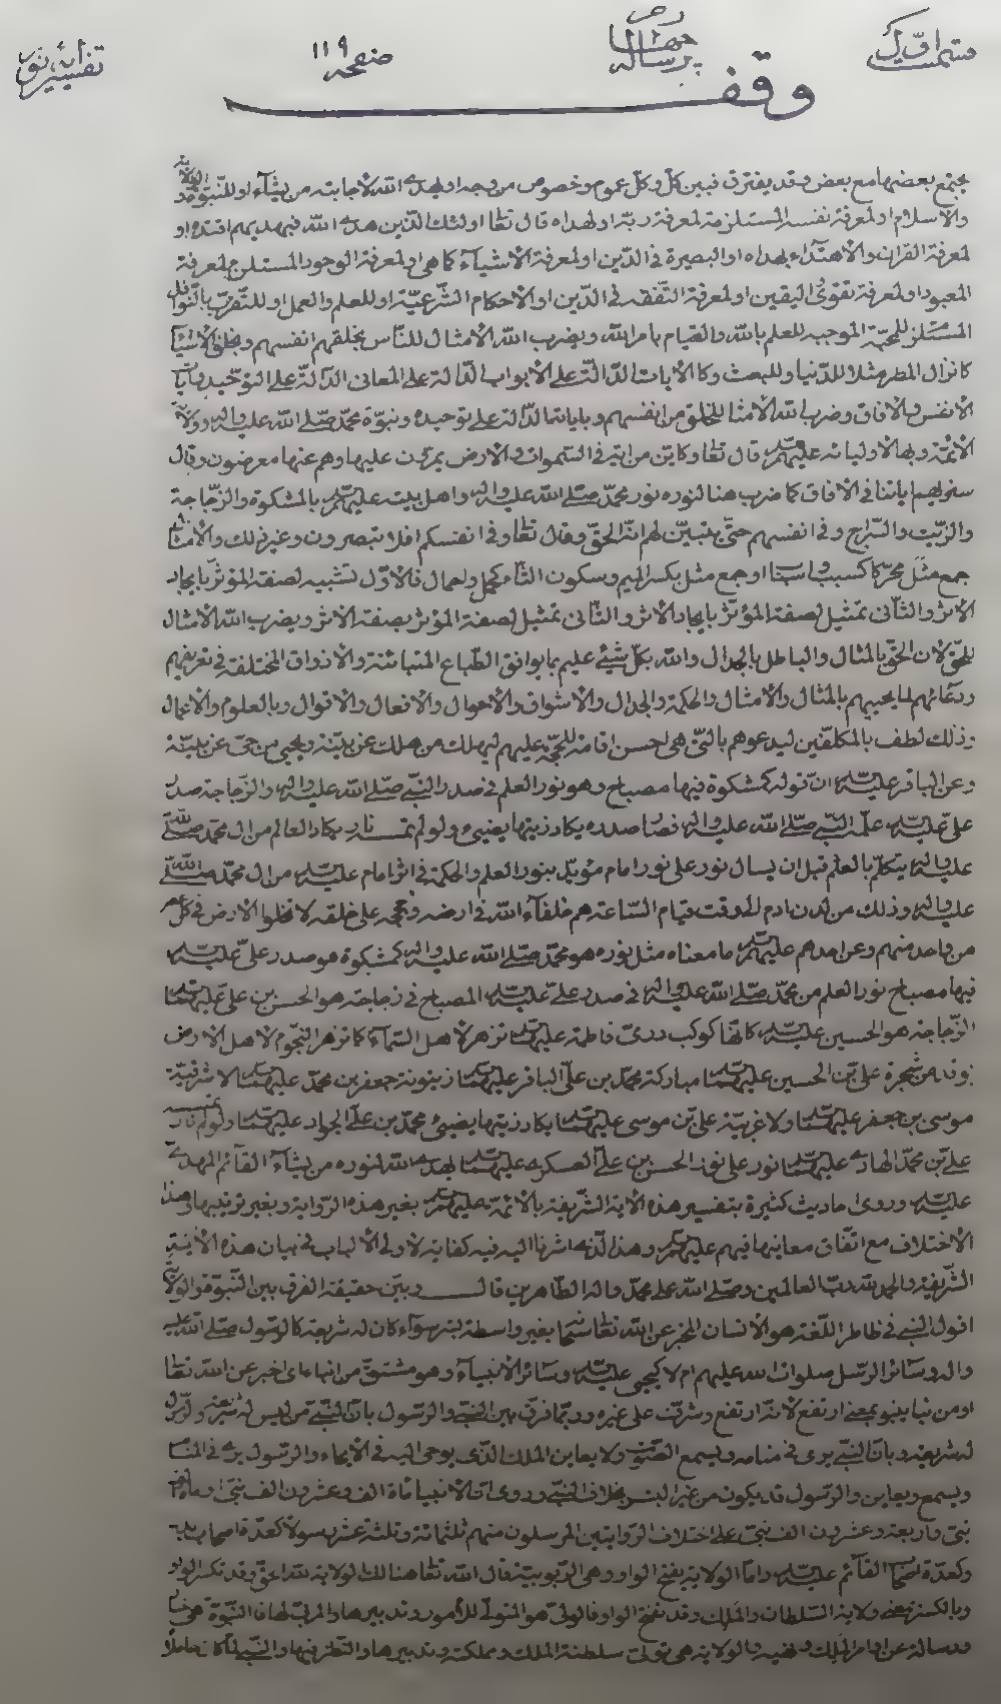 قسمت اوّل
رساله
صفحه ١١٩
تفسير آية نور
وقف
يجتمع بعضها مع بعض وقد يفترق فبين كلّ وكلّ عموم وخصوص من وجه او يهدى الله لاجابته من يشآء او للنّبوّة
والاسلام او لمعرفة نفسه المستلزمة لمعرفة ربّه او لهداه قال تعا اولئك الّذين هدى الله فبهديهم اقتده او
لمعرفة القران والاهتداء بهداه او البصيرة فى الدّين او لمعرفة الاشيآء كما هى او لمعرفة الوجود المستلزم لمعرفة
المعبود او لمعرفة تقوى اليقين او لمعرفة التّفقّه فى الدّين او الاحكام الشّرعيّة او للعلم والعمل او للتّقرّب بالنّوافل
المستلزم للمحبّة الموجبة للعلم بالله والقيام بامر الله ويضرب الله الامثال للنّاس بخلقهم انفسهم وبخلق الاشيآ
كانزال المطر مثلا للدّنيا وللبعث وكالايات الدّالّة على الابواب الدّالة على المعانى الدّالّة على التّوحيد
الانفس والافاق وضرب الله الامثا للخلق من انفسهم وباياته الدّالة على توحيده ونبوّة محمّد صلّى الله عليه واله وولاية
الائمّة وبها لاوليائه عليهم السّلم قال تعا وكايّن من اية فى السّموات والارض يمرّون عليها وهم عنها معرضون وقال
سنريهم اياتنا فى الافاق كما ضرب هنا لنوره نور محمّد صلّى الله عليه واله واهل بيته عليهم السّلم بالمشكوة والزّجاجة
والزّيت والسّراج وفى انفسهم حتّى يتبيّن لهم انّه الحقّ وقال تعا وفى انفسكم افلا تبصرون وغير ذلك والامثا
جمع مثَل محرّكا كسبب واسباب او جمع مثل بكسر الميم وسكون الثاء كحمل واحمال فالاوّل تشبيه لصفة المؤثّر بايجاد
الاثر والثّانى تمثيل لصفة المؤثّر بايجاد الاثر والثّانى تمثيل لصفة المؤثر بصفة الاثر ويضرب الله الامثال
للحق لان الحقّ بالمثال والباطل بالجدال والله بكلّ شيئ عليم بما يوافق الطّباع المتباينة والاذواق المختلفة فى تعريفهم
ودعائهم لما يحييهم بالمثال والامثال والحكمة والجدال والاشواق والاحوال والافعال والاقوال وبالعلوم والاعمال
وذلك لطف بالمكلّفين ليدعوهم بالتى هى احسن اقامة للحجّة عليهم ليهلك من هلك عن بيّنة ويحيى من حىّ عن بيّنة
وعن الباقر عليه السّلم انّ قوله كمشكوة فيها مصباح وهو نور العلم فى صدر النّبى صلّى الله عليه واله والزّجاجة صدر
علىّ عليه السّلم علّمه النّبى صلّى الله عليه واله فصار صدره يكاد زيتها يضيئ ولو لم تمسسه نار يكاد العالم من ال محمّد صلّى الله
عليه واله يتكلّم بالعلم قبل ان يسال نور على نور امام مؤيّد بنور العلم والحكمة فى اثر امام عليه السّلم من ال محمّد صلّى الله
عليه واله وذلك من لدن ادم الى وقت قيام السّاعة هم خلفآء الله فى ارضه وحججه على خلقه لا تخلوا الارض فى كل عصر
من واحد منهم وعن احدهم عليهم السّلم ما معناه مثل نوره هو محمّد صلّى الله عليه واله كمشكوة هو صدر علىّ عليه السّلم
فيها مصباح نور العلم من محمّد صلّى الله عليه واله فى صدر علىّ عليه السّلم المصباح فى زجاجة هو الحسن بن علىّ عليهما السّلم
الزّجاجة هو الحسين عليه السّلم كانّها كوكب درىّ فاطمة عليها السّلم تزهر لاهل السّمآء كما تزهر النّجوم لاهل الارض
يوقد من شجرة علىّ بن الحسين عليهما السّلم مباركة محمّد بن علىّ الباقر عليهما السّلم زيتونة جعفر بن محمّد عليهما السّلم لا شرقيّة
موسى بن جعفر عليهما السّلم ولا غربيّة علىّ بن موسى عليهما السّلم يكاد زيتها يضيئ محمّد بن علىّ الجواد عليهما السّلم ولو لم تمسسه نار
علىّ بن محمّد الهادى عليهما السّلم نور على نور الحسن بن علىّ العسكرى عليهما السّلم يهدى الله لنوره من يشآء القآئم المهدى
عليه السّلم وروى احاديث كثيرة بتفسير هذه الاية الشّريفة بالائمّة عليهم السّلم بغير هذه الرّواية وبغير ترتيبها وهذا
الاختلاف مع اتّفاق معانيها فيهم عليهم السّلم وهذا الّذى اشرنا اليه فيه كفاية لاولى الالباب فى بيان هذه الاية
الشّريفة والحمد لله ربّ العالمين وصلّى الله على محمّد واله الطّاهرين قال وبيّن حقيقة الفرق بين النّبوّة والولاية
اقول النّبى فى ظاهر اللّغة هو الانسان المخبر عن الله تعا بغير واسطة بشر سوآء كان له شريعة كالرّسول صلّى الله عليه
واله وسائر الرّسل صلوات الله عليهم ام لا كيحيى عليه السّلم وسائر الانبيآء وهو مشتقّ من انباء اى اخبر عن الله تعا
او من نبا ينبو بمعنى ارتفع لانّه ارتفع وشرف على غيره وربّما فرق بين النّبى والرّسول بانّ النّبى من ليس له شريعة والرّسول
له شريعة وبانّ النّبى يرى فى منامه ويسمع الصّوت ولا يعاين الملك الّذى يوحى اليه فى الايحاء والرّسول يرى فى المنام
ويسمع ويعاين والرّسول قد يكون من غير البشر بخلاف النّبى وروى انّ الانبيآء مأة الف وعشرون الف نبىّ
نبىّ واربعة وعشرون الف نبىّ على اختلاف الرّوايتين المرسلون منهم ثلثمائة وثلثة عشر رسولا كعدّة اصحاب بدر
وكعدّة اصحاب القآئم عليه السّلم وامّا الولاية بفتح الواو وهى الرّبوبيّة قال الله تعا هنالك الولاية لله الحقّ وقد تكسر الواو
وبالكسر بمعنى ولاية السّلطان والملك وقد تفتح الواو فالولىّ هو المتولّى للأمور وتدبيرها والمربّى لها فالنّبوّة هى
ورسالة عن امر الملك ونهيه والولاية هى تولّى سلطنة الملك ومملكته وتدبيرها والنّظر فيها والنّبى لمّا كان حاملا